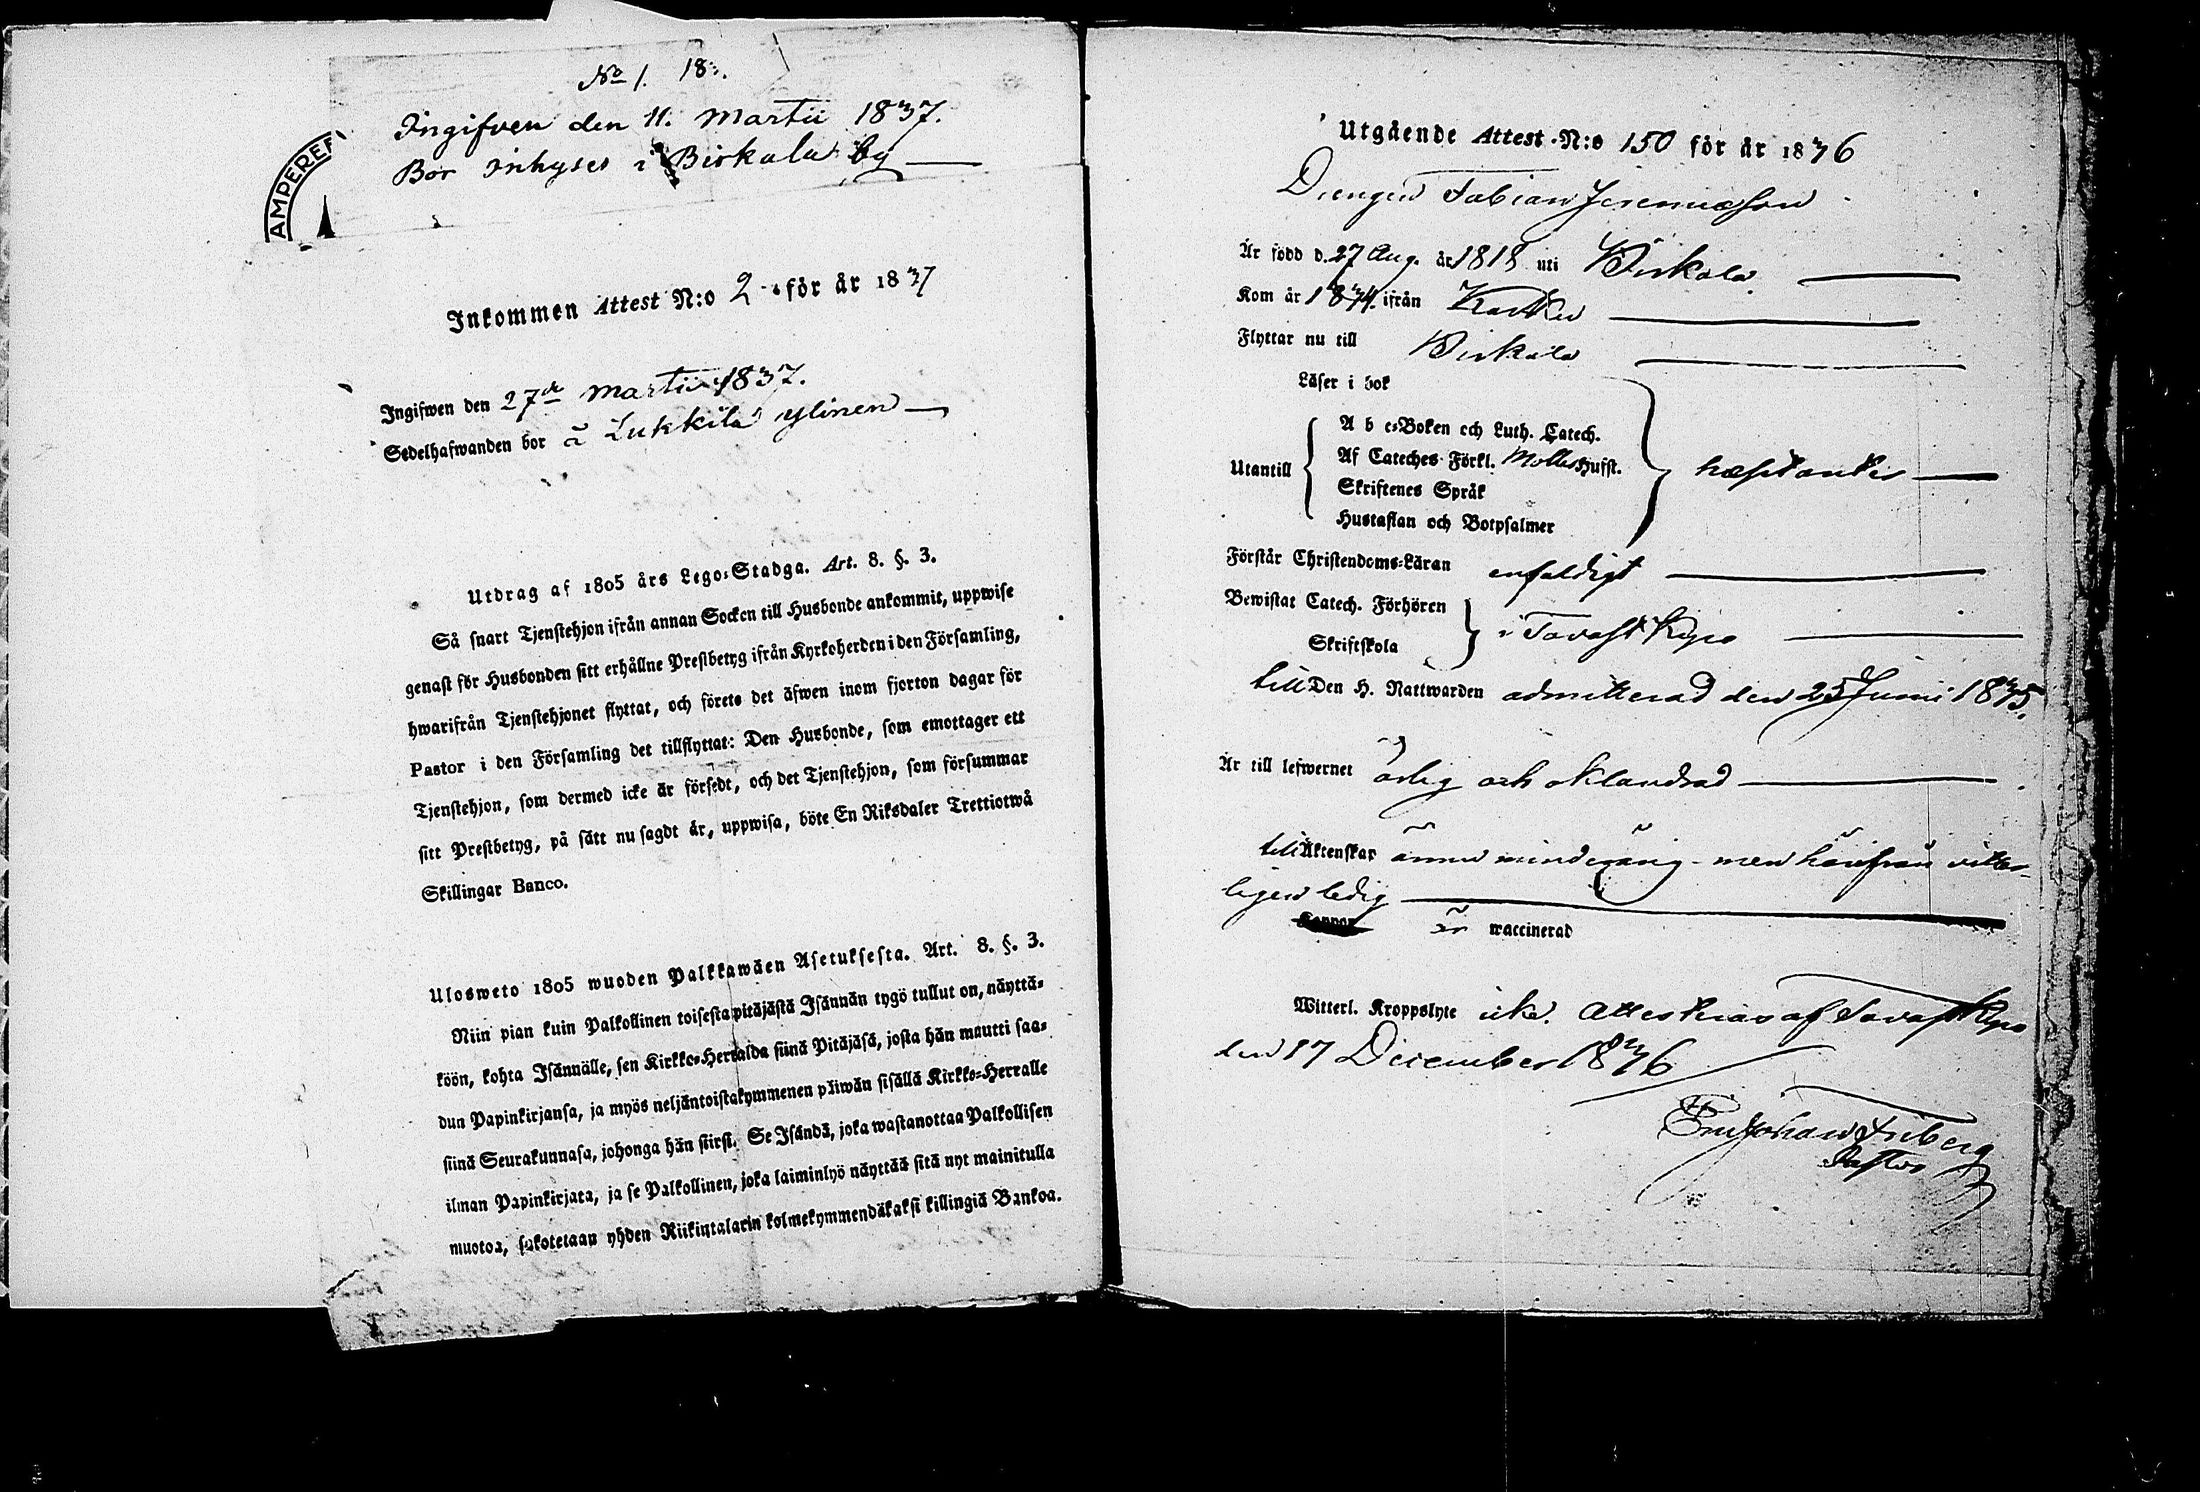 No 1. 18
Ingifven den 11. Martii 1837.
Bor Inhyses i Birkala by
AMPEREE
Inkommen Attest N:o 2 för år 1837
Ingifwen den 27de Martii 1837.
Sedelhafwanden bor å Lukkila ylinen
Utdrag af 1805 års Lego-Stadga. Art. 8. §. 3.
Så snart Tjenstehjon ifrån annan Socken till Husbonde ankommit, uppwise
genast för Husbonden sitt erhållne Prestbetyg ifrån Kyrkoherden i den Församling,
hwarifrån Tjenstehjonet flyttat, och förete det äfwen inom fjorton dagar för
Pastor i den Församling det tillflyttat: Den Husbonde, som emottager ett
Tjenstehjon, som dermed icke är försedt, och det Tjenstehjon, som försummar
sitt Prestbetyg, på sätt nu sagdt är, uppwisa, böte En Riksdaler Trettiotwå
Skillingar Banco.
Ulosweto 1805 wuoden Palkkawäen Asetuksesta. Art. 8. §. 3.
Niin pian kuin Palkollinen toisesta pitäjästä Isännän tygö tullut on, näyttä-
köön, kohta Isännälle, sen Kirkko-Herralda siinä Pitäjäsä, josta hän muutti saa-
dun Papinkirjansa, ja myös neljäntoistakymmenen päiwän sisällä Kirkko-Herralle
siinä Seurakunnasa, johonga hän siirsi. Se Isändä, joka wastanottaa Palkollisen
ilman Papinkirjata, ja se Palkollinen, joka laiminlyö näyttää sitä nyt mainitulla
muotoa, sakotetaan yhden Riikintalarin kolmekymmendäkaksi killingiä Bankoa.
Utgående Attest N:o 150 för år 1836
Drengen Fabian Jeremiæson
Är född d. 27 Aug. år 1818 uti Birkala
Kom år 1834. ifrån Karkku
Flyttar nu till Birkala
Läser i bok
A b c-Boken och Luth. Catech.
Utantill Af Cateches Förkl. Hufst. hæsitanter
Skriftenes Språk
Hustaflan och Botpsalmer
Förstår Christendoms-Läran enfaldigt
Bewistat Catech. Förhören
Skriftskola i Tavast Kyro
till Den H. Nattwarden admitterad den 25 Junii 1835.
Är till lefwernet ärlig och oklandrad
till Äktenskap ännu minderårig - men härifrån vitter-
ligen ledig
Koppor är waccinerad
Witterl. Kroppslyte icke. Attesteras af Tavast Kyro
den 17 December 1836
Johan Friberg
Pastor